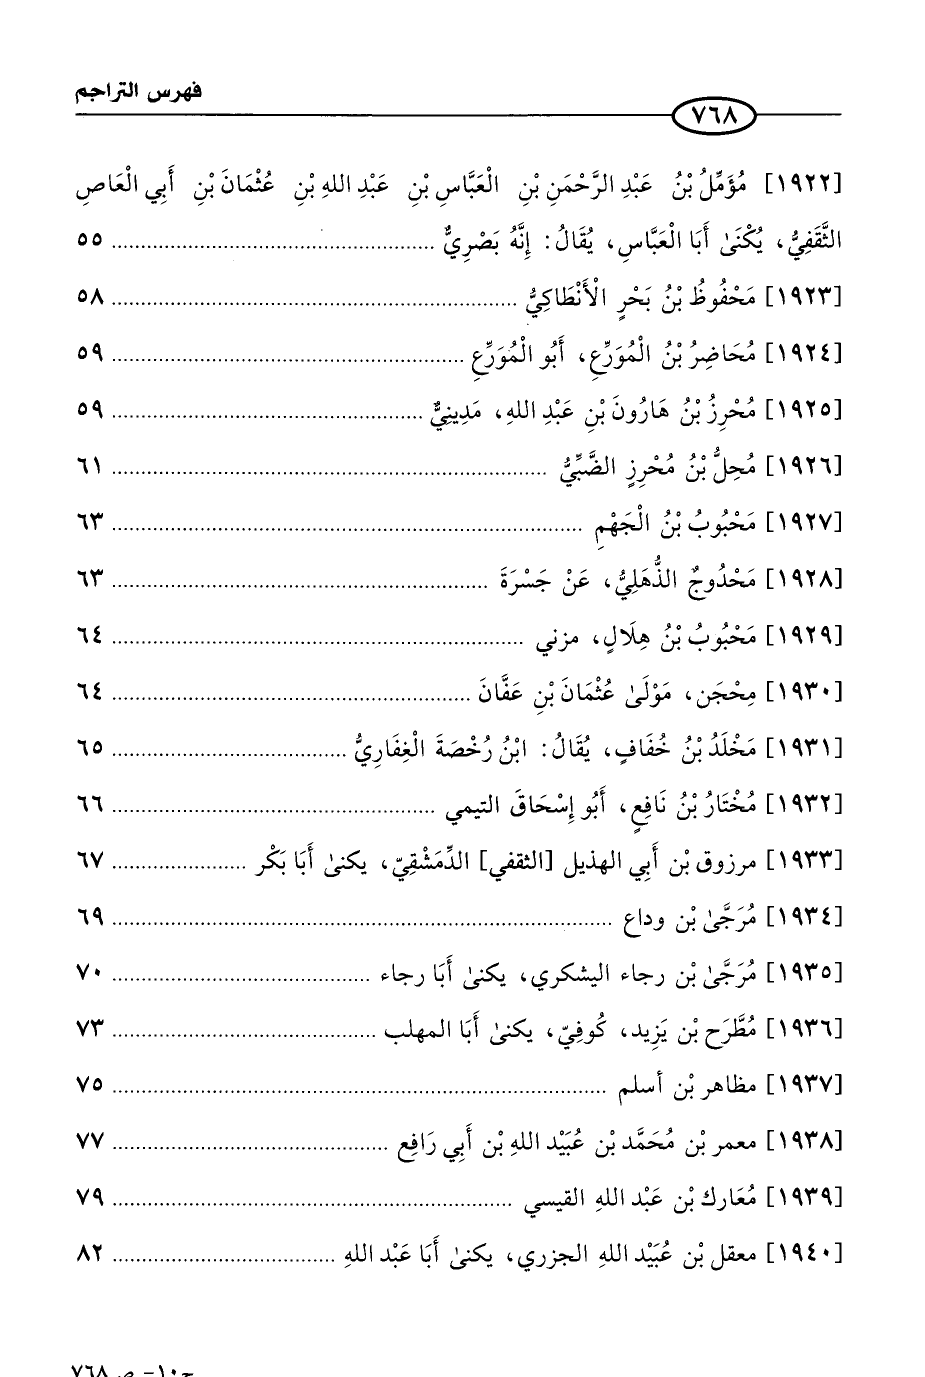 فهرس التراجم
٧٦٨
[١٩٢٢] مُؤَمِّلُ بْنُ عَبْدِ الرَّحْمَنِ بْنِ الْعَبَّاسِ بْنِ عَبْدِ اللهِ بْنِ عُثْمَانَ بْنِ أَبِي الْعَاصِ
الثَّقَفِيُّ، يُكْنَىٰ أَبَا الْعَبَّاسِ، يُقَالُ: إِنَّهُ بَصْرِيٌّ ............ ٥٥
[١٩٢٣] مَحْفُوظُ بْنُ بَحْرٍ الْأَنْطَاكِيُّ ............ ٥٨
[١٩٢٤] مُحَاضِرُ بْنُ الْمُوَرِّعِ، أَبُو الْمُوَرِّعِ ............ ٥٩
[١٩٢٥] مُحْرِزُ بْنُ هَارُونَ بْنِ عَبْدِ اللهِ، مَدِينِيٌّ ............ ٥٩
[١٩٢٦] مُحِلُّ بْنُ مُحْرِزٍ الضَّبِّيُّ ............ ٦١
[١٩٢٧] مَحْبُوبُ بْنُ الْجَهْمِ ............ ٦٣
[١٩٢٨] مَحْدُوجٌ الذُّهَلِيُّ، عَنْ جَسْرَةَ ............ ٦٣
[١٩٢٩] مَحْبُوبُ بْنُ هِلَالٍ، مزني ............ ٦٤
[١٩٣٠] مِحْجَن، مَوْلَىٰ عُثْمَانَ بْنِ عَفَّانَ ............ ٦٤
[١٩٣١] مَخْلَدُ بْنُ خُفَافٍ، يُقَالُ: ابْنُ رُخْصَةَ الْغِفَارِيُّ ............ ٦٥
[١٩٣٢] مُخْتَارُ بْنُ نَافِعٍ، أَبُو إِسْحَاقَ التيمي ............ ٦٦
[١٩٣٣] مرزوق بْن أَبِي الهذيل [الثقفي] الدِّمَشْقِيّ، يكنىٰ أَبَا بَكْر ............ ٦٧
[١٩٣٤] مُرَجَّىٰ بْن وداع ............ ٦٩
[١٩٣٥] مُرَجَّىٰ بْن رجاء اليشكري، يكنىٰ أَبَا رجاء ............ ٧٠
[١٩٣٦] مُطَّرَح بْن يَزِيد، كُوفِيّ، يكنىٰ أَبَا المهلب ............ ٧٣
[١٩٣٧] مظاهر بْن أسلم ............ ٧٥
[١٩٣٨] معمر بْن مُحَمَّد بْن عُبَيْد اللهِ بْن أَبِي رَافِع ............ ٧٧
[١٩٣٩] مُعَارك بْن عَبْد اللهِ القيسي ............ ٧٩
[١٩٤٠] معقل بْن عُبَيْد اللهِ الجزري، يكنىٰ أَبَا عَبْد اللهِ ............ ٨٢
ج١٠- ص٧٦٨